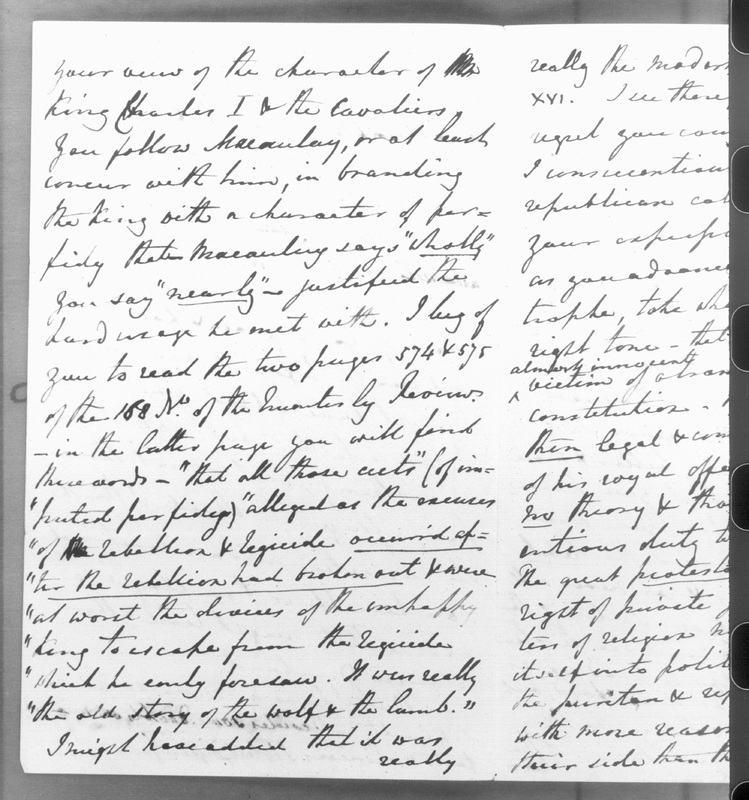 your view of the character of
King Charles I & the Cavaliers
You follow Macaulay, or at least
concur with him, in branding
the King with a character of per=
fidy that Macaulay says "wholly"
you say "nearly" justified the
hard usage he met with. I beg of
you to read the two pages 574 & 575
of the 168 No. of the Quarterly Review
– in the latter page you will find
these words – "that all those acts" (of im=
"puted perfidy) "alleged as the excuses
"of rebellion & regicide occurr'd af=
"ter the rebellion had broken out & were
"at worst the devices of the unhappy
"King to escape from the regicide
"which he early foresaw. It was really
"the old story of the wolf & the lamb."
I might have added that it was
really
really the
XVI. I see there
regret you
I conscientious
republican
your
as you advance
trophe, take
right tone – that
almost innocent
victim of
constitution –
then legal &
of his royal
no theory &
duty
The great
right of private
of religion
itself into
the puritan &
with more reason
their side than